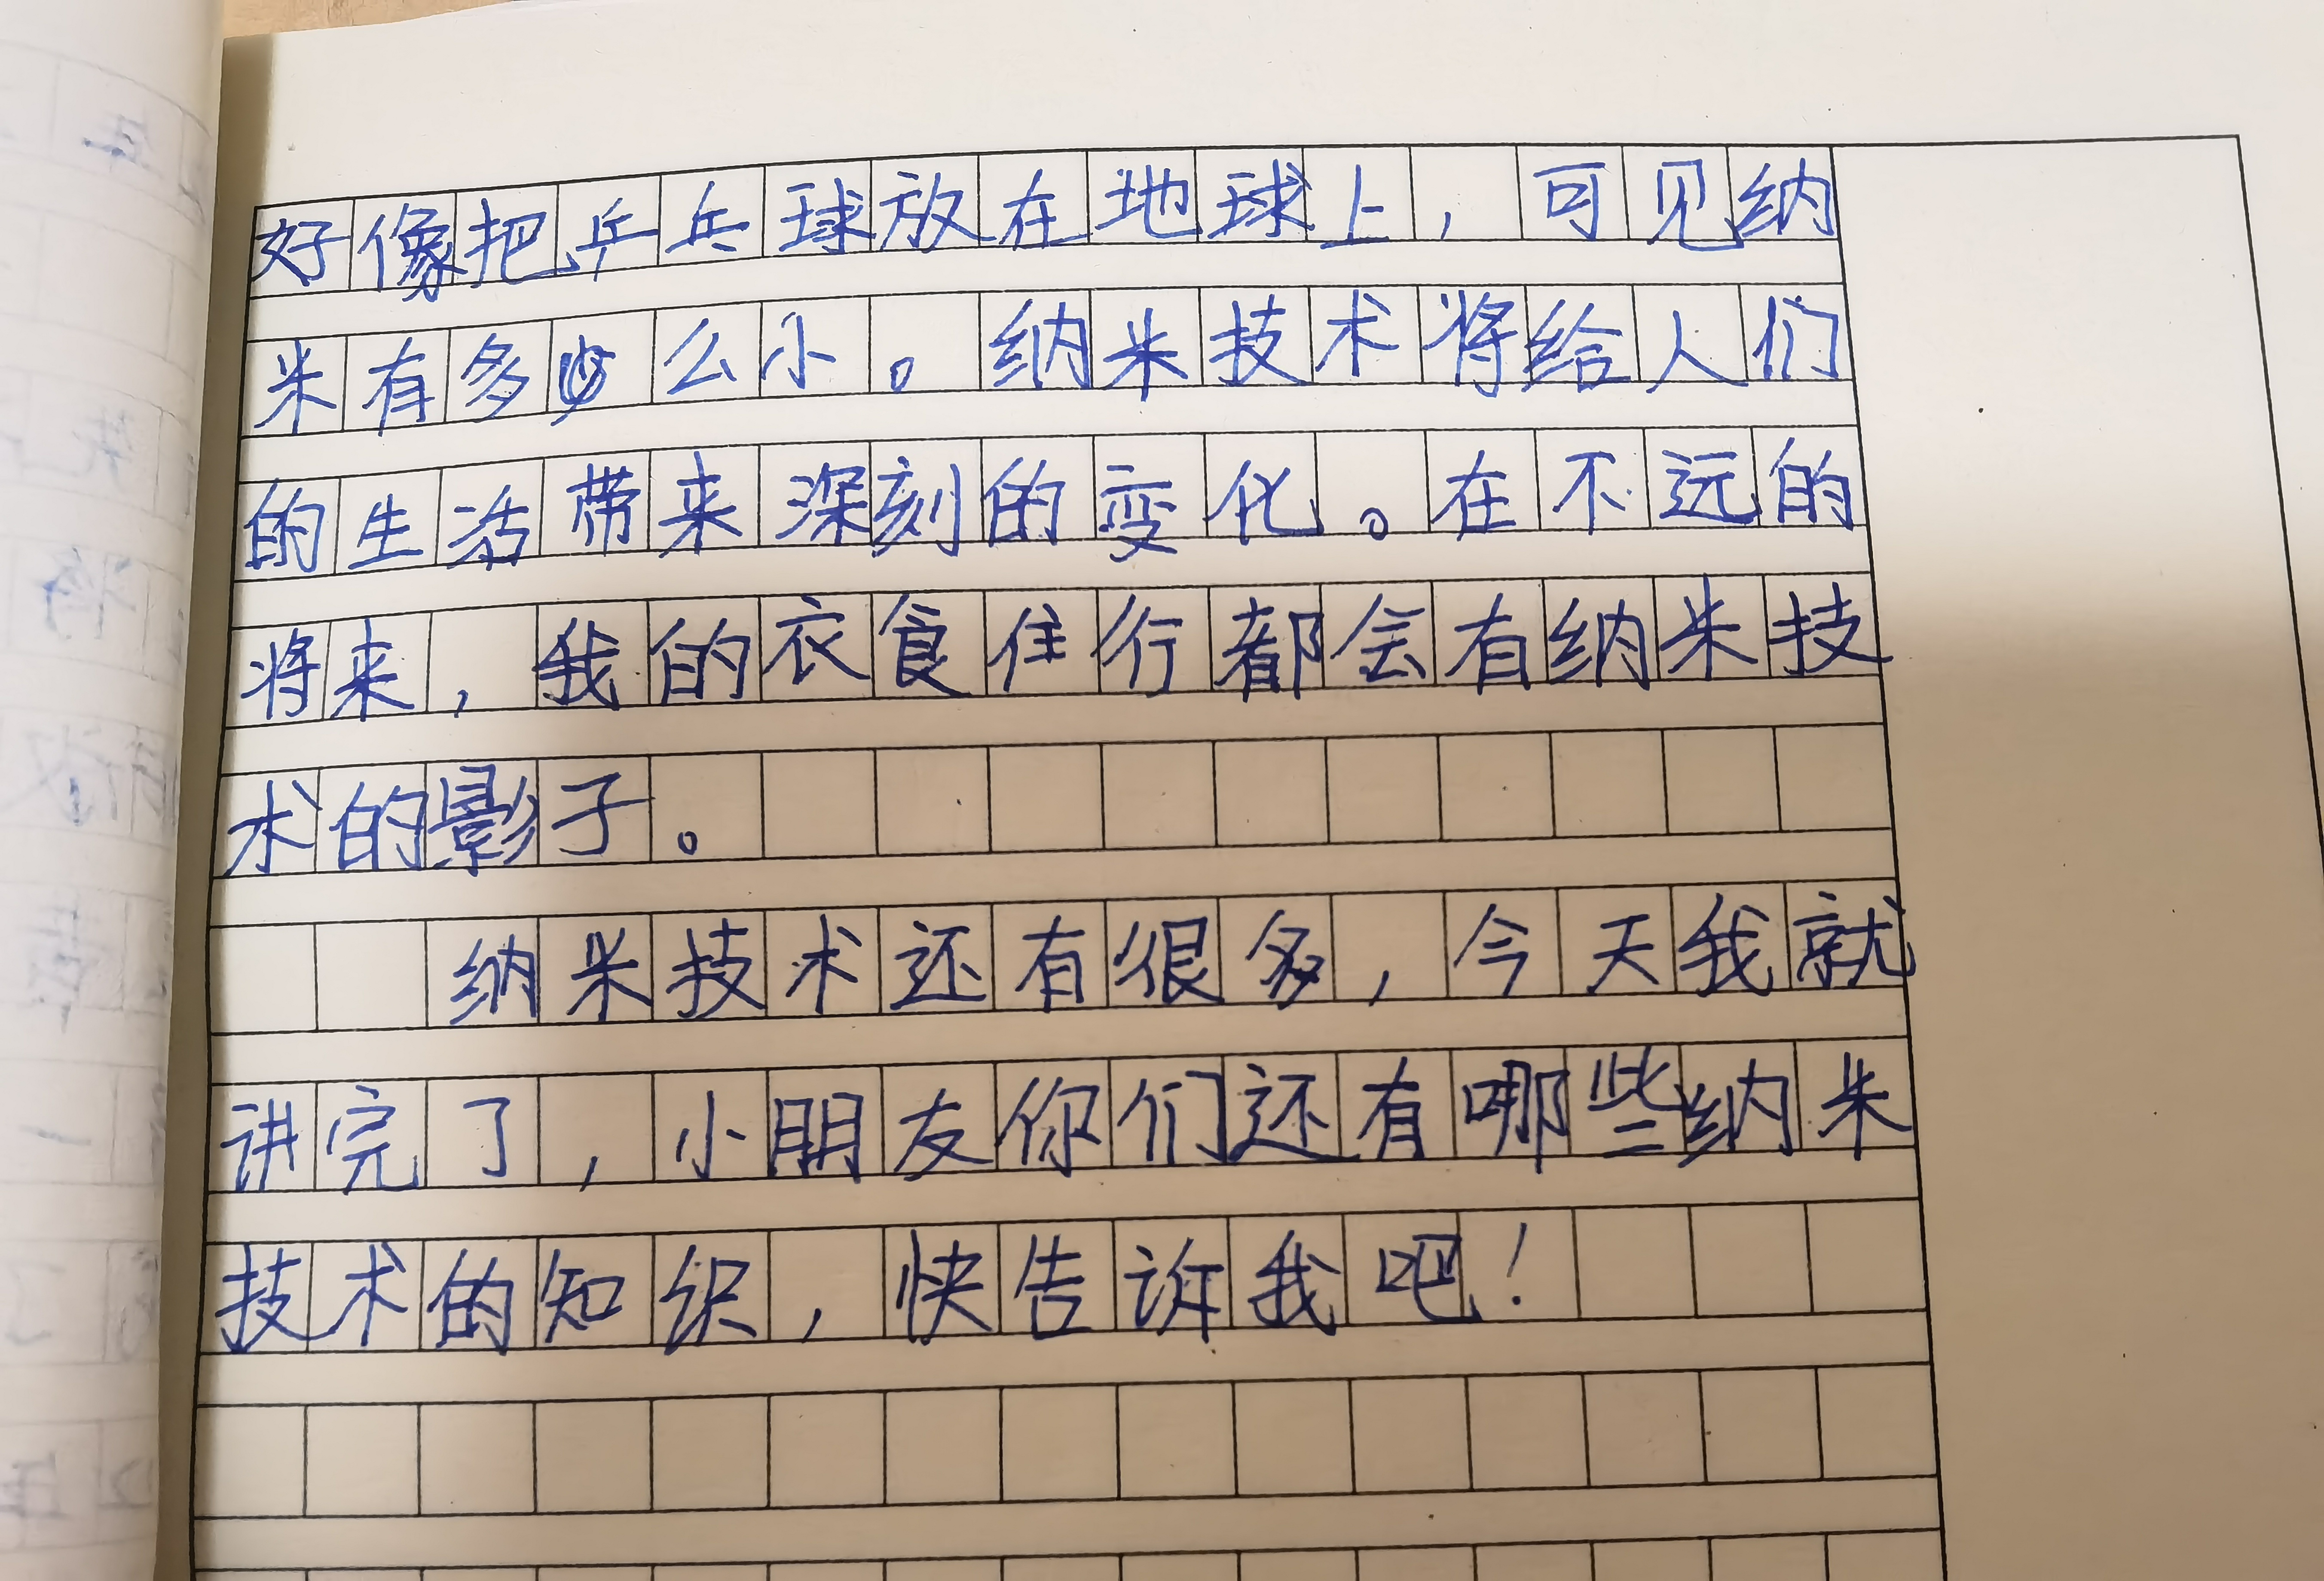 好像把乒乓球放在地球上，可见纳
米有多么小。纳米技术将给人们
的生活带来深刻的变化。在不远的
将来，我的衣食住行都会有纳米技
术的影子。
纳米技术还有很多，今天我就
讲完了，小朋友你们还有哪些纳米
技术的知识，快告诉我吧！